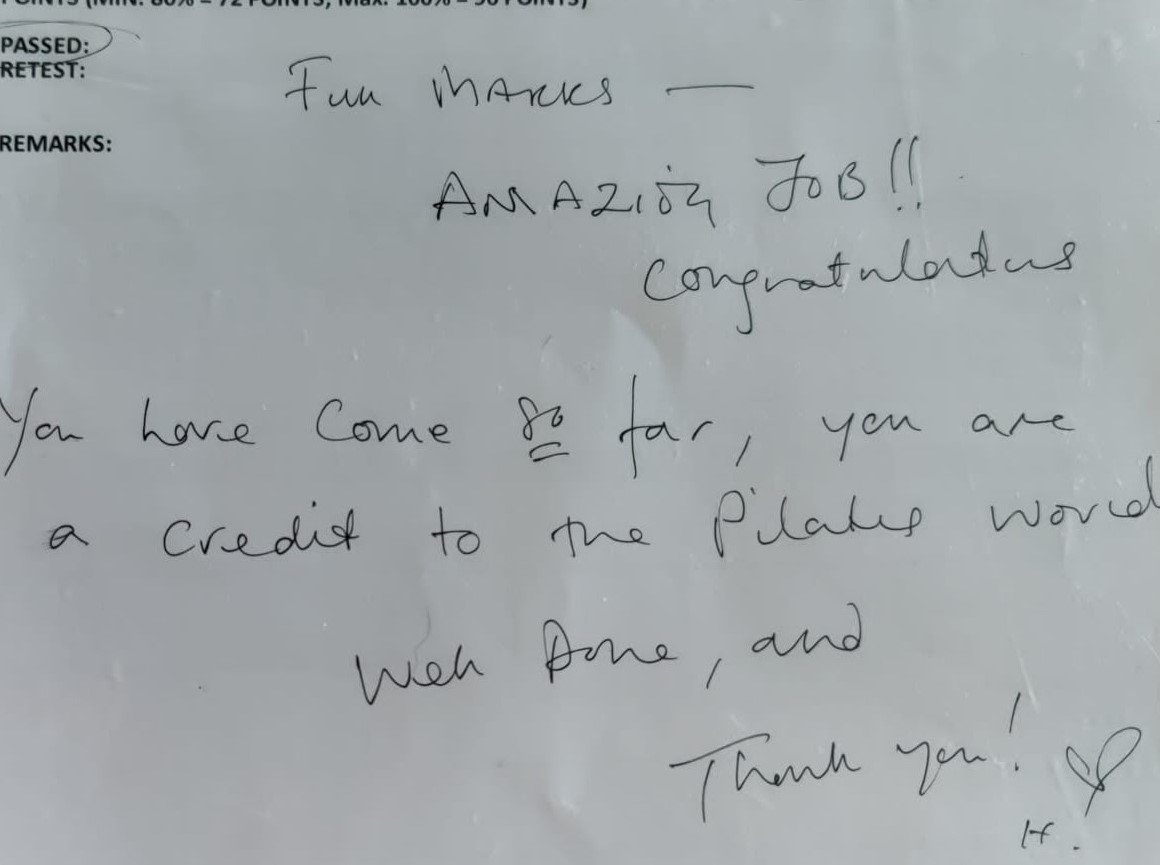 POINTS (MIN: 80% = 72 POINTS, Max: 100% = 90 POINTS)
PASSED:
RETEST:
Full MARKS —
REMARKS:
AMAZING JOB!!
Congratulations
You have come so far, you are
a credit to the Pilates world
Well Done, and
Thank you!
H.